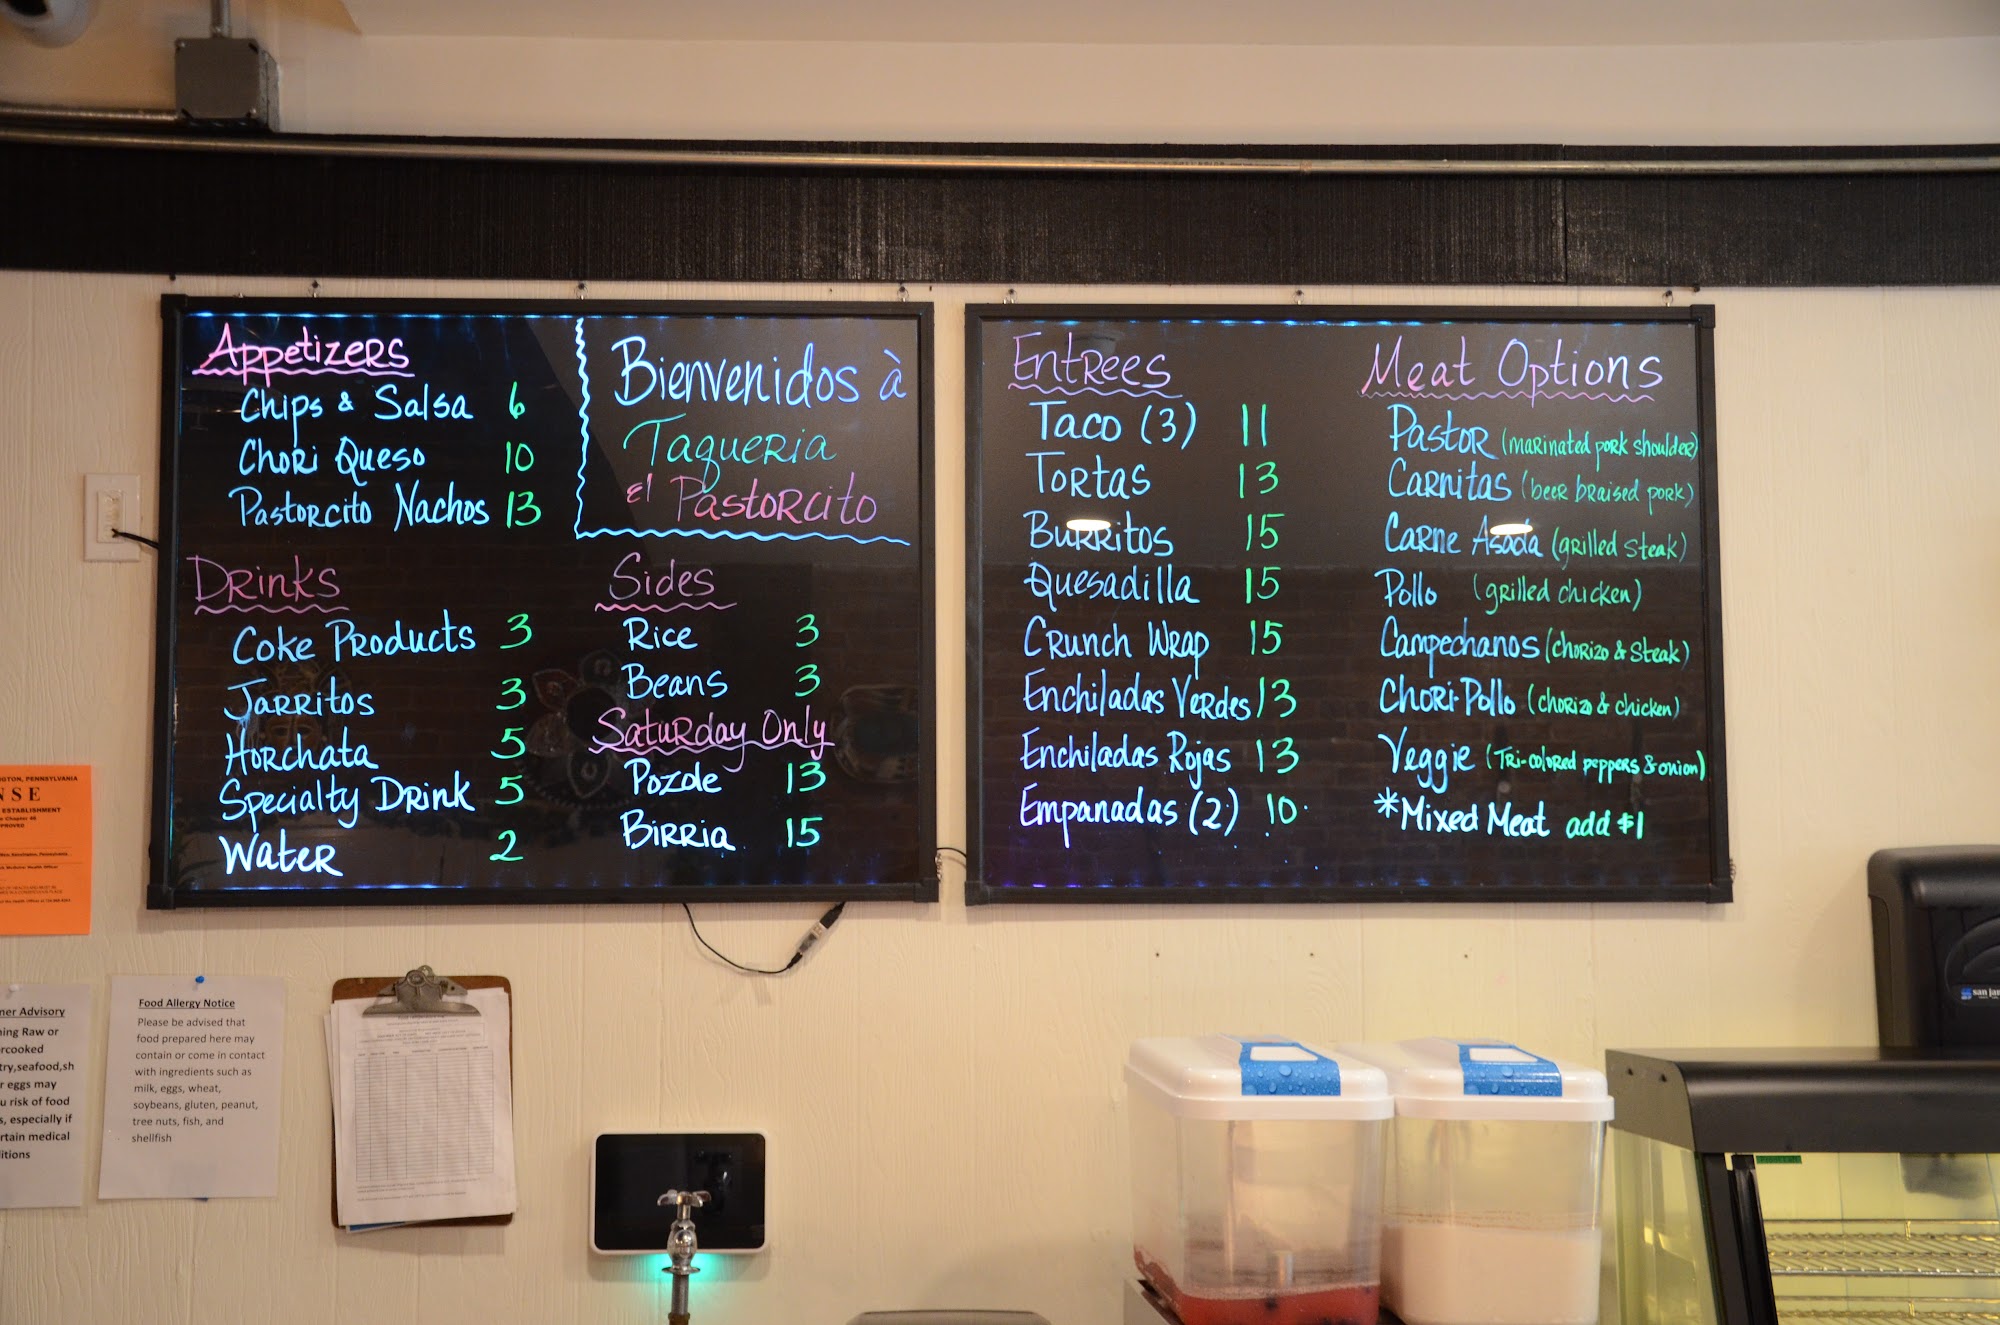 Appetizers
Chips & Salsa 6
Chori Queso 10
Pastorcito Nachos 13
Bienvenidos à
Taqueria
el Pastorcito
Drinks
Coke Products 3
Jarritos 3
Horchata 5
Specialty Drink 5
Water 2
Sides
Rice 3
Beans 3
Saturday Only
Pozole 13
Birria 15
Entrees
Taco (3) 11
Tortas 13
Burritos 15
Quesadilla 15
Crunch Wrap 15
Enchiladas Verdes 13
Enchiladas Rojas 13
Empanadas (2) 10
Meat Options
Pastor (marinated pork shoulder)
Carnitas (beer braised pork)
Carne Asada (grilled steak)
Pollo (grilled chicken)
Campechanos (chorizo & steak)
Chori-Pollo (chorizo & chicken)
Veggie (Tri-colored peppers & onion)
*Mixed Meat add $1
PENNSYLVANIA
ESTABLISHMENT
Advisory
Raw or
eggs may
risk of food
especially if
medical
Food Allergy Notice
Please be advised that
food prepared here may
contain or come in contact
with ingredients such as
milk, eggs, wheat,
soybeans, gluten, peanut,
tree nuts, fish, and
shellfish
san jam